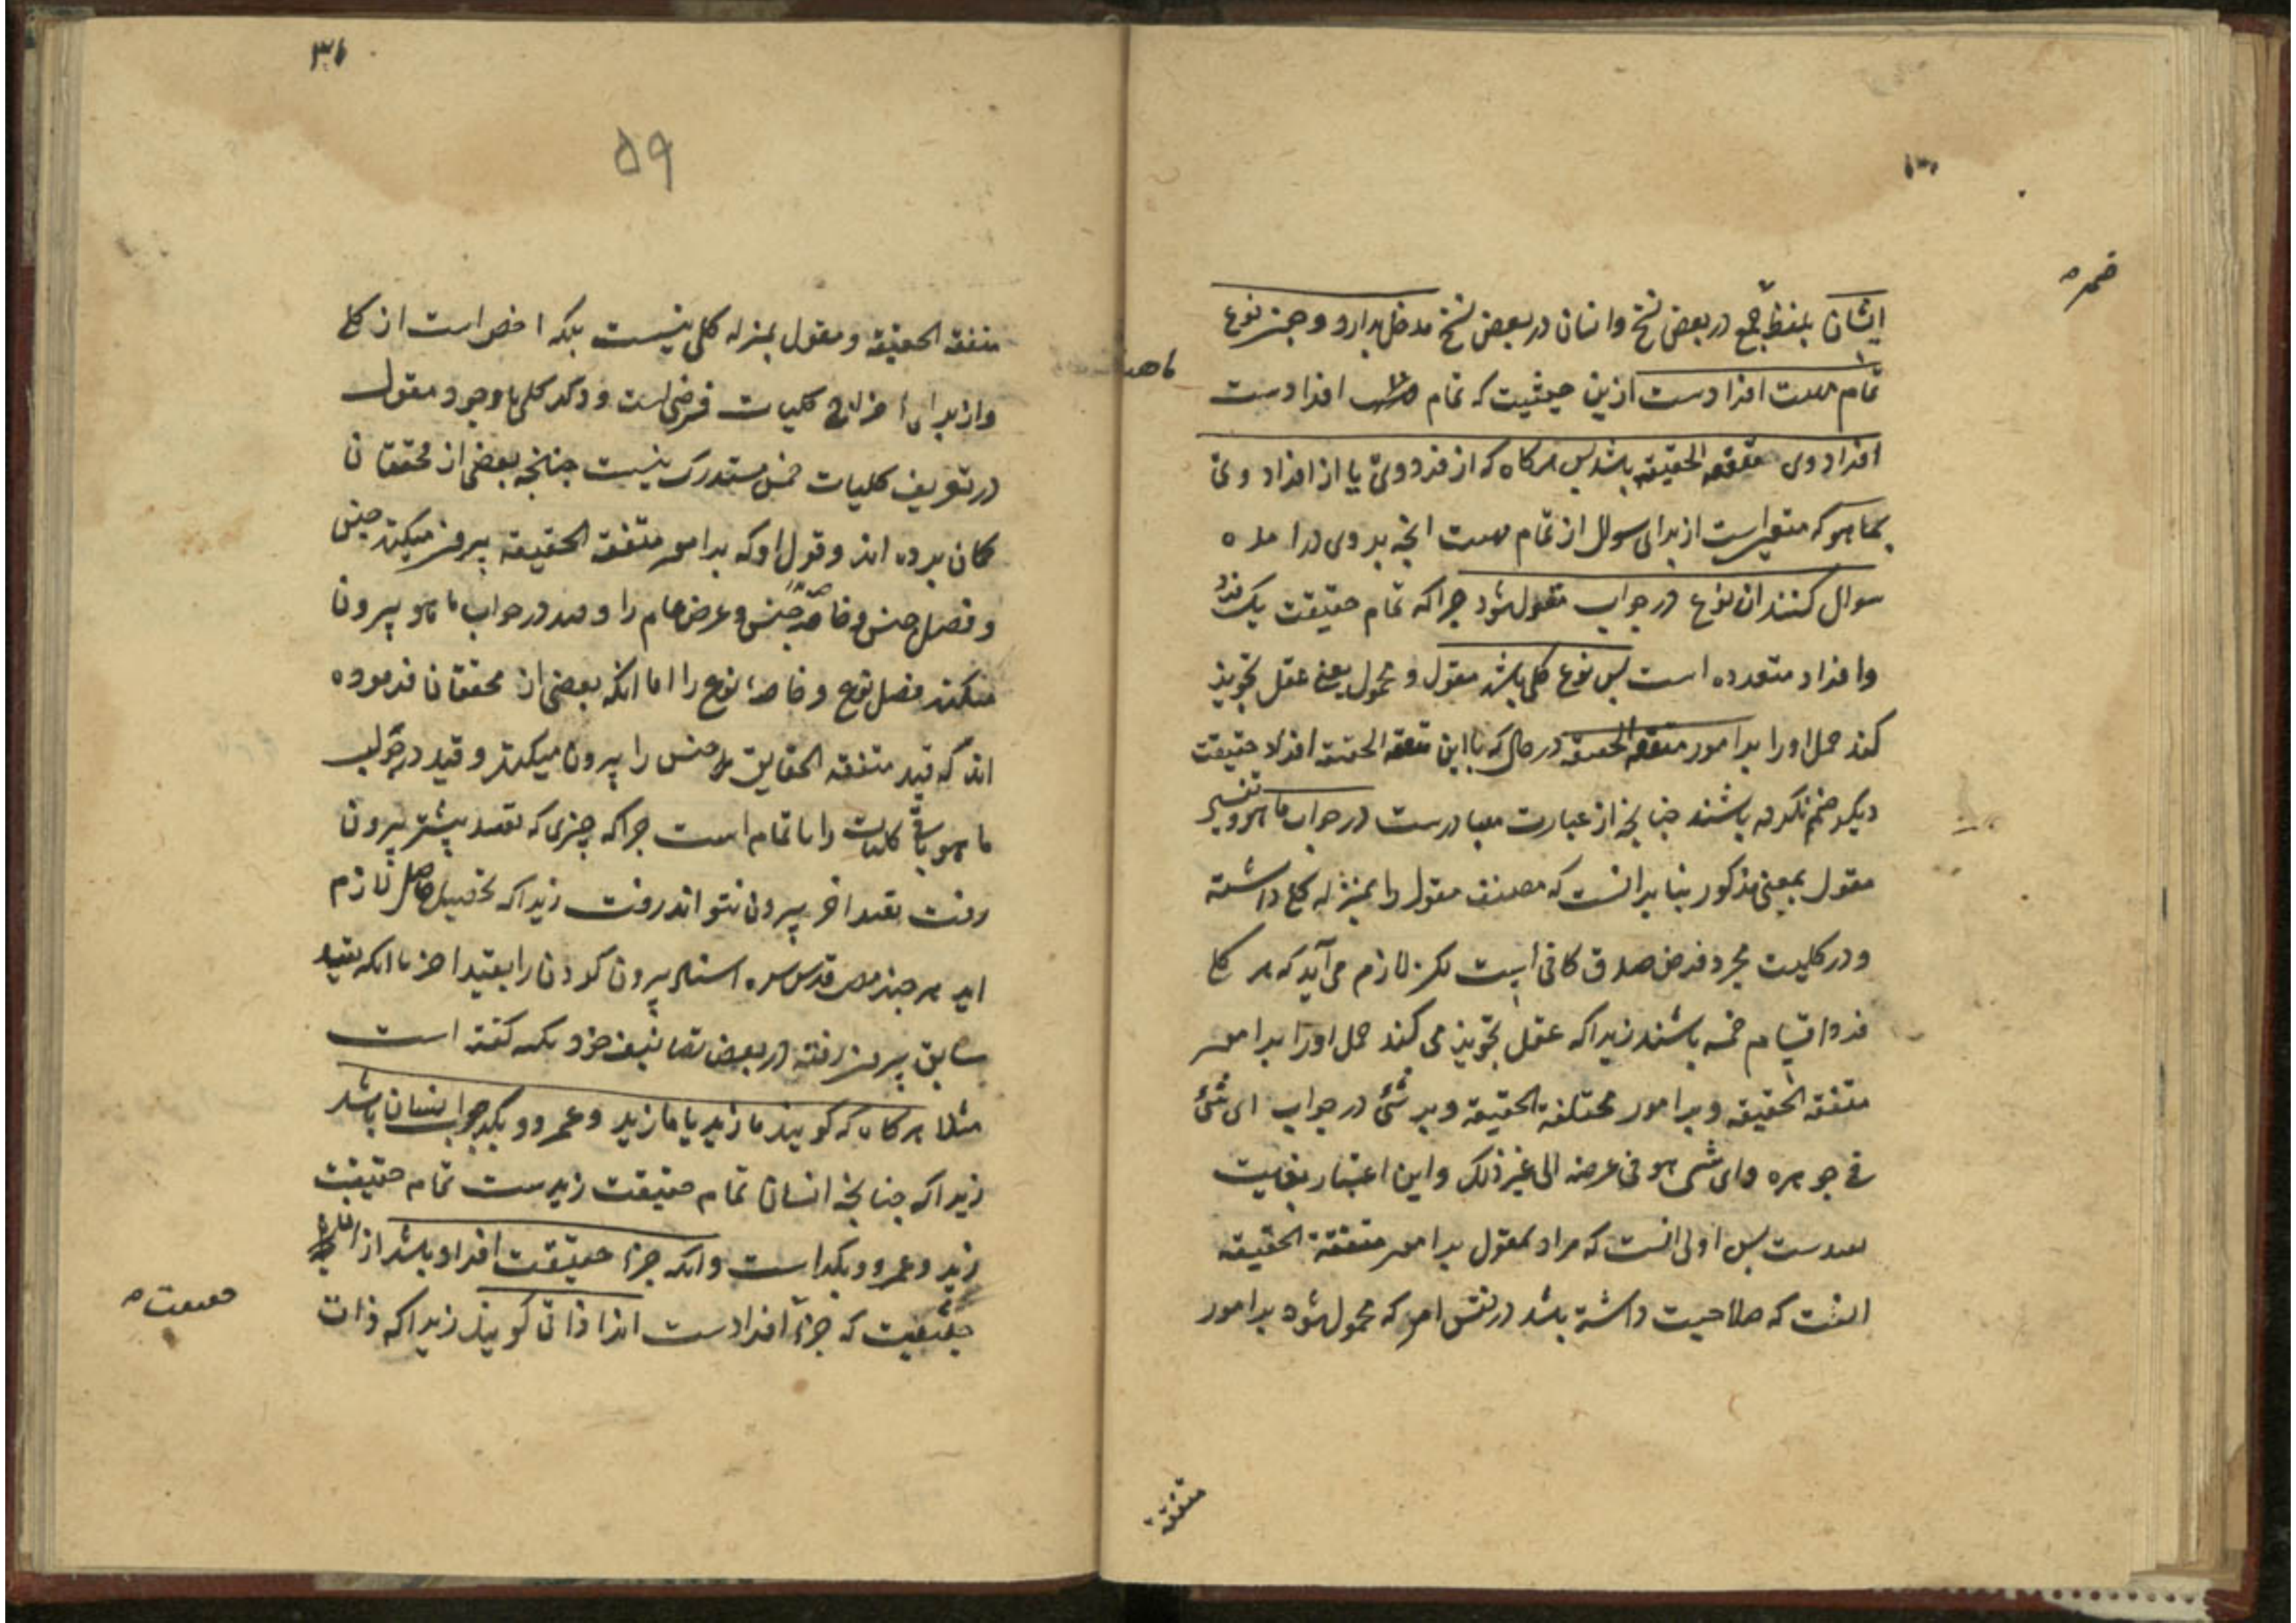 ضمیر
ایشان بلفظ جمع در بعض نسخ و انسان در بعض نسخ مدخل ندارد و چون نوع
تمام ماهیت افرادست ازین حیثیت که تمام ماهیت افرادست
افراد وی متفقه الحقیقه باشد پس هرکاه که از فرد وی یا از افراد وی
بما هو که متعیر است از برای سوال از تمام ماهیت انجه بر وی در امده
سوال کنند ان نوع در جواب مقول شود جراکه تمام حقیقت یک فرد
و افراد متعدده است پس نوع کلی باشد مقول و محمول یعنی عقل تجویز
کند حمل او را بر امور متفقه الحقیقه در حالی که با این متفقه الحقیقه افراد حقیقت
دیکر ضم نکرده باشند جنانجه از عبارت متبادرست در جواب ما هو و تفسیر
مقول بمعنی مذکور بنا بر انست که مصنف مقول را بمنزله کلی داشته
و در کلیت مجرد فرض صدق کافی است لکن لازم می آید که هر کلی
فرد اقسام خمسه باشند زیراکه عقل تجویز می کند حمل او را بر امور
متفقه الحقیقه و بر امور مختلفة الحقیقه و بر شئ در جواب ای شئ
فی جوهره و ای شی هو فی عرضه الی غیر ذلک و این اعتبار بغایت
بعیدست پس اولی انست که مراد بمقول بر امور متفقة الحقیقه
انست که صلاحیت داشته باشد در نفس امر که محمول شود بر امور
متفقه
۳۱
۵۹
متفقه الحقیقه و مقول بمنزله کلی نیست بلکه اخص است از کلی
و از برای اخراج کلیات فرضی است و ذکر کلی با وجود مقول
در تعریف کلیات خمس مستدرک نیست جنانجه بعضی از محققان
کان برده اند و قول او که بر امور متفقه الحقیقه بیرون میکند جنس
و فصل جنس و خاصه جنس و عرض عام را و قید در جواب ما هو بیرون
میکند فصل نوع و خاصه نوع را اما انکه بعضی از محققان فرموده
اند که قید متفقه الحقایق جنس را بیرون میکند و قید در جواب
ما هو باقی کلیات را ناتمام است جراکه جیزی که بقید بیشتر بیرون
رفت بقید اخر بیرون نتواند رفت زیراکه تحصیل حاصل لازم
اید هر جند قدس سره اسناد بیرون کردن را بقید اخر با انکه بقید
سابق بیرون رفته در بعض تصانیف خود کفته است
مثلا هرکاه که کویند ما زید یا ما زید و عمرو و بکر جواب انسان باشد
زیراکه جنانجه انسان تمام حقیقت زیدست تمام حقیقت
زید و عمرو و بکر است و انکه جزء حقیقت افراد باشد از
حیثیت که جزء افرادست انرا ذاتی کویند زیراکه ذات